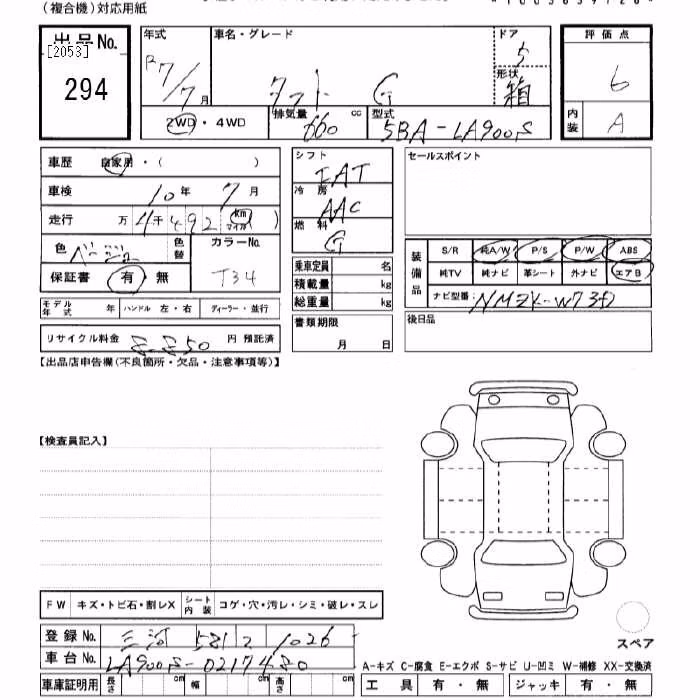 (複合機)対応用紙
出品No.
[2053]
294
年式
R7/7月
車名・グレード
タフト G
ドア
5
形状
箱
評価点
6
内装
A
2WD・4WD
排気量
660 cc
型式
5BA-LA900S
車歴 自家用・( )
車検 10年 7月
走行 万 4千492 (km マイル)
色 ベージュ
色替
カラーNo.
T34
保証書 有 無
モデル年式 年 ハンドル 左・右 ディーラー・並行
リサイクル料金 円 預託済
シフト
FAT
冷房
AAC
燃料
G
乗車定員 名
積載量 kg
総重量 kg
書類期限
月 日
セールスポイント
装備品
S/R 純A/W P/S P/W ABS
純TV 純ナビ 革シート 外ナビ エアB
ナビ型番: NMZK-W73D
後日品
【出品店申告欄(不良箇所・欠品・注意事項等)】
【検査員記入】
FW キズ・トビ石・割レX シート内装 コゲ・穴・汚レ・シミ・破レ・スレ
登録No. 三河 581 1026
車台No. LA900S-0217480
車庫証明用 長さ cm 幅 cm 高さ cm
スペア
A-キズ C-腐食 E-エクボ S-サビ U-凹ミ W-補修 XX-交換済
工具 有・無 ジャッキ 有・無